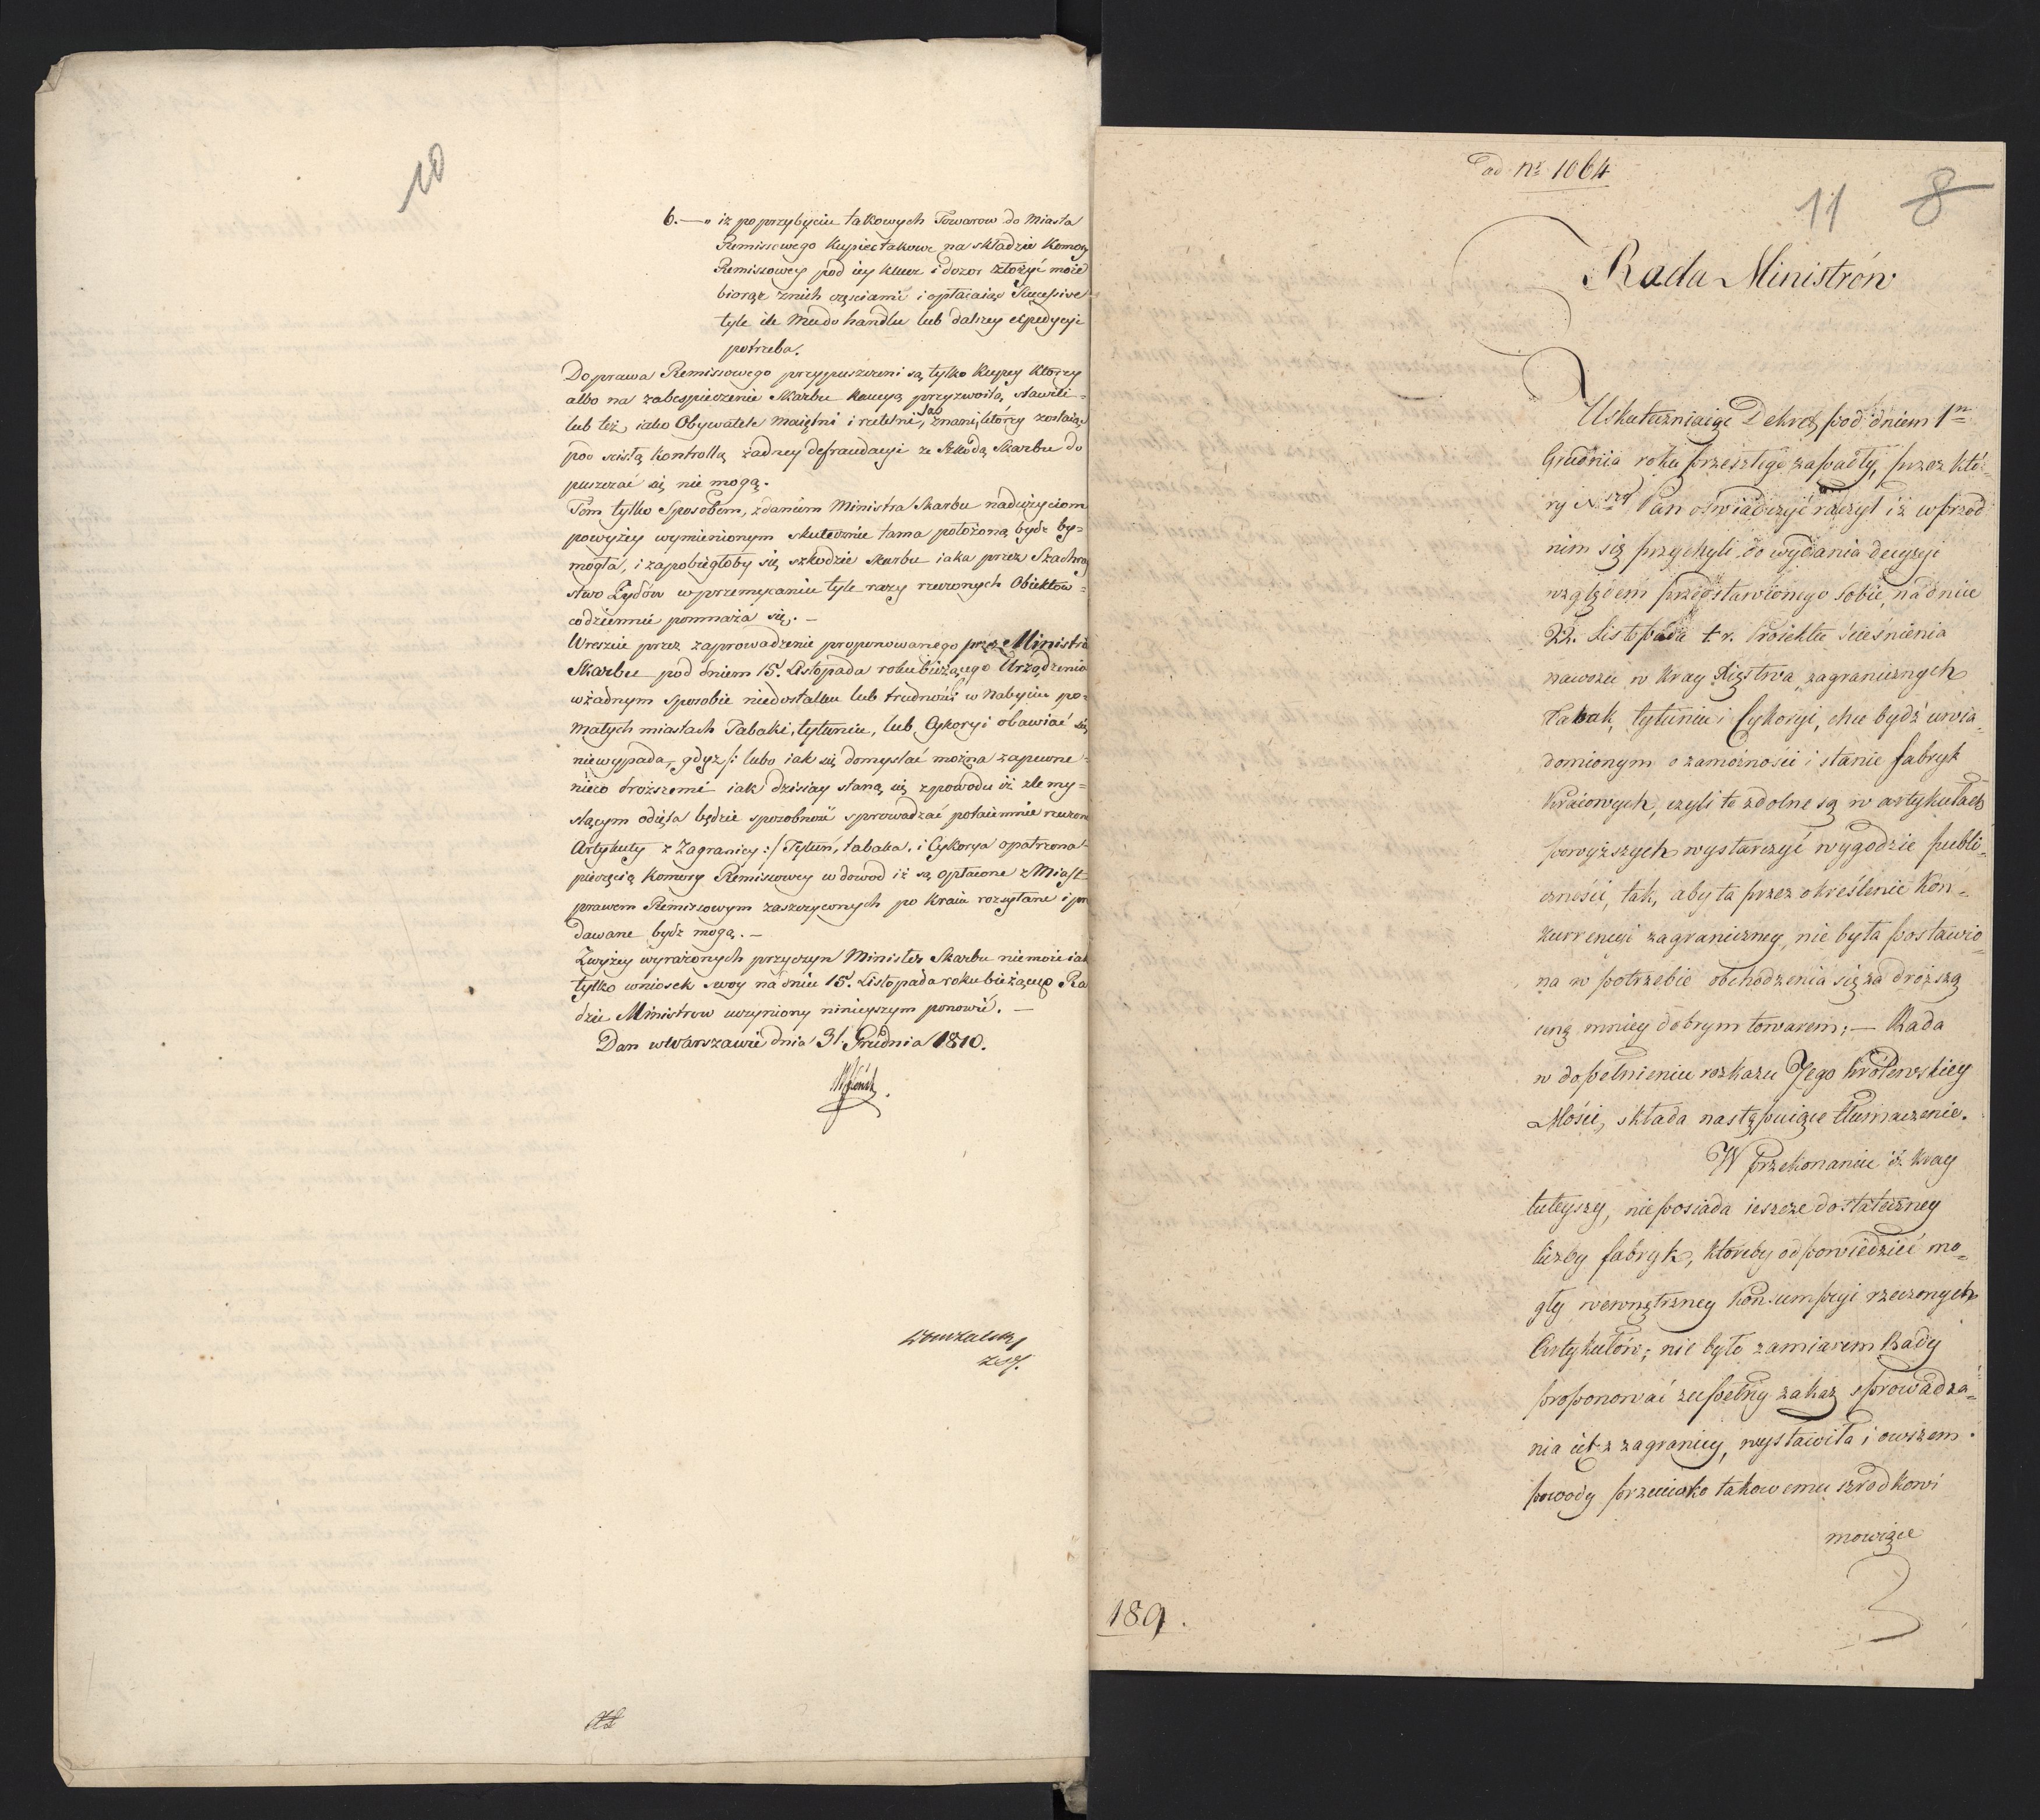 10
6. — „ iż po przybyciu takowych Towarow do Miasta
Remissowego Kupiec takowe na składzie Komory
Remissowey pod iey klucz i dozor złożyć może
biorąc z nich częściami i opłacaiąc Successive
tyle ile Mu do handlu lub dalszey expedycyi
potrzeba.
Do prawa Remissowego przypuszczeni są tylko Kupcy którzy
albo na zabespieczenie Skarbu kaucyą przyzwoitą stawili
lub też iako Obywatele maiętni i rzetelni są znani, którzy zostaiąc
pod scisłą kontrollą żadney defraudacyi ze szkodą Skarbu do
puszczać się nie mogą.
Tem tylko Sposobem, zdaniem Ministra Skarbu nadużyciom
powyżey wymienionym skutecznie tama położona bydź by=
mogła, i zapobiegłoby się szkodzie Skarbu iaka przez Szachray
stwo Żydów w przemycaniu tyle razy rzeczonych Obiektów =
codziennie pomnaża się. —
Wreszcie przez zaprowadzenie proponowanego przez Ministra
Skarbu pod dniem 15. Listopada roku bieżącego Urządzenia
w żadnym sposobie niedostatku lub trudności w nabyciu po=
małych miastach Tabaki, tytuniu, lub Cykoryi obawiać się
niewypada, gdyż /: lubo iak się domyslać można zapewne
nieco droższemi iak dzisiay staną się z powodu iż zle my=
slącym odięta będzie sposobność sprowadzać potaiemnie rzeczone
Artykuły z Zagranicy :/ Tytuń, tabaka, i Cykorya opatrzona
pieczęcią Komory Remissowey w dowod iż są opłacone z Miast
prawem Remissowym zaszczyconych po Kraiu rozsyłane i prze
dawane bydź mogą. —
Z wyżey wyrażonych przyczyn Minister Skarbu nie może iak
tylko wniosek swoy na dniu 15. Listopada roku bieżącego Ra
dzie Ministrow uczyniony ninieyszym ponowić. —
Dan w Warszawie dnia 31. Grudnia 1810.
ad nr 1064
11 8
Rada Ministrów
Uskuteczniaiąc Dekret pod dniem 1m
Grudnia roku przeszłego zapadły, przez któ=
ry Nszy Pan oświadczyć raczył iż wprzód
nim się przychyli do wydania decyzyi
względem przedstawionego Sobie, na dniu
22. Listopada t. r. Proiektu ścieśnienia
nawozu w Kray Xięstwa zagranicznych
Tabak, tytuniu i Cykoryi, chce bydź uwia=
domionym o zamożności i stanie fabryk
Kraiowych, czyli te zdolne są w artykułach
powyższych wystarczyć wygodzie publi=
czności, tak, aby ta przez określenie Kon=
kurrencyi zagraniczney, nie była postawio=
na w potrzebie obchodzenia się za droższą
cenę mniey dobrym towarem; — Rada
w dopełnieniu rozkazu Jego Królewskiey
Mości, składa następuiące tłumaczenie.
W przekonaniu iż Kray
tuteyszy, nie posiada ieszcze dostateczney
liczby fabryk, któreby odpowiedzieć mo=
gły wewnętrzney Konsumpcyi rzeczonych
Artykułów; nie było zamiarem Rady
proponować zupełny zakaz sprowadza=
nia ich z zagranicy, wystawiła i owszem
powody przeciwko takowemu szrodkowi
mowiące
189.